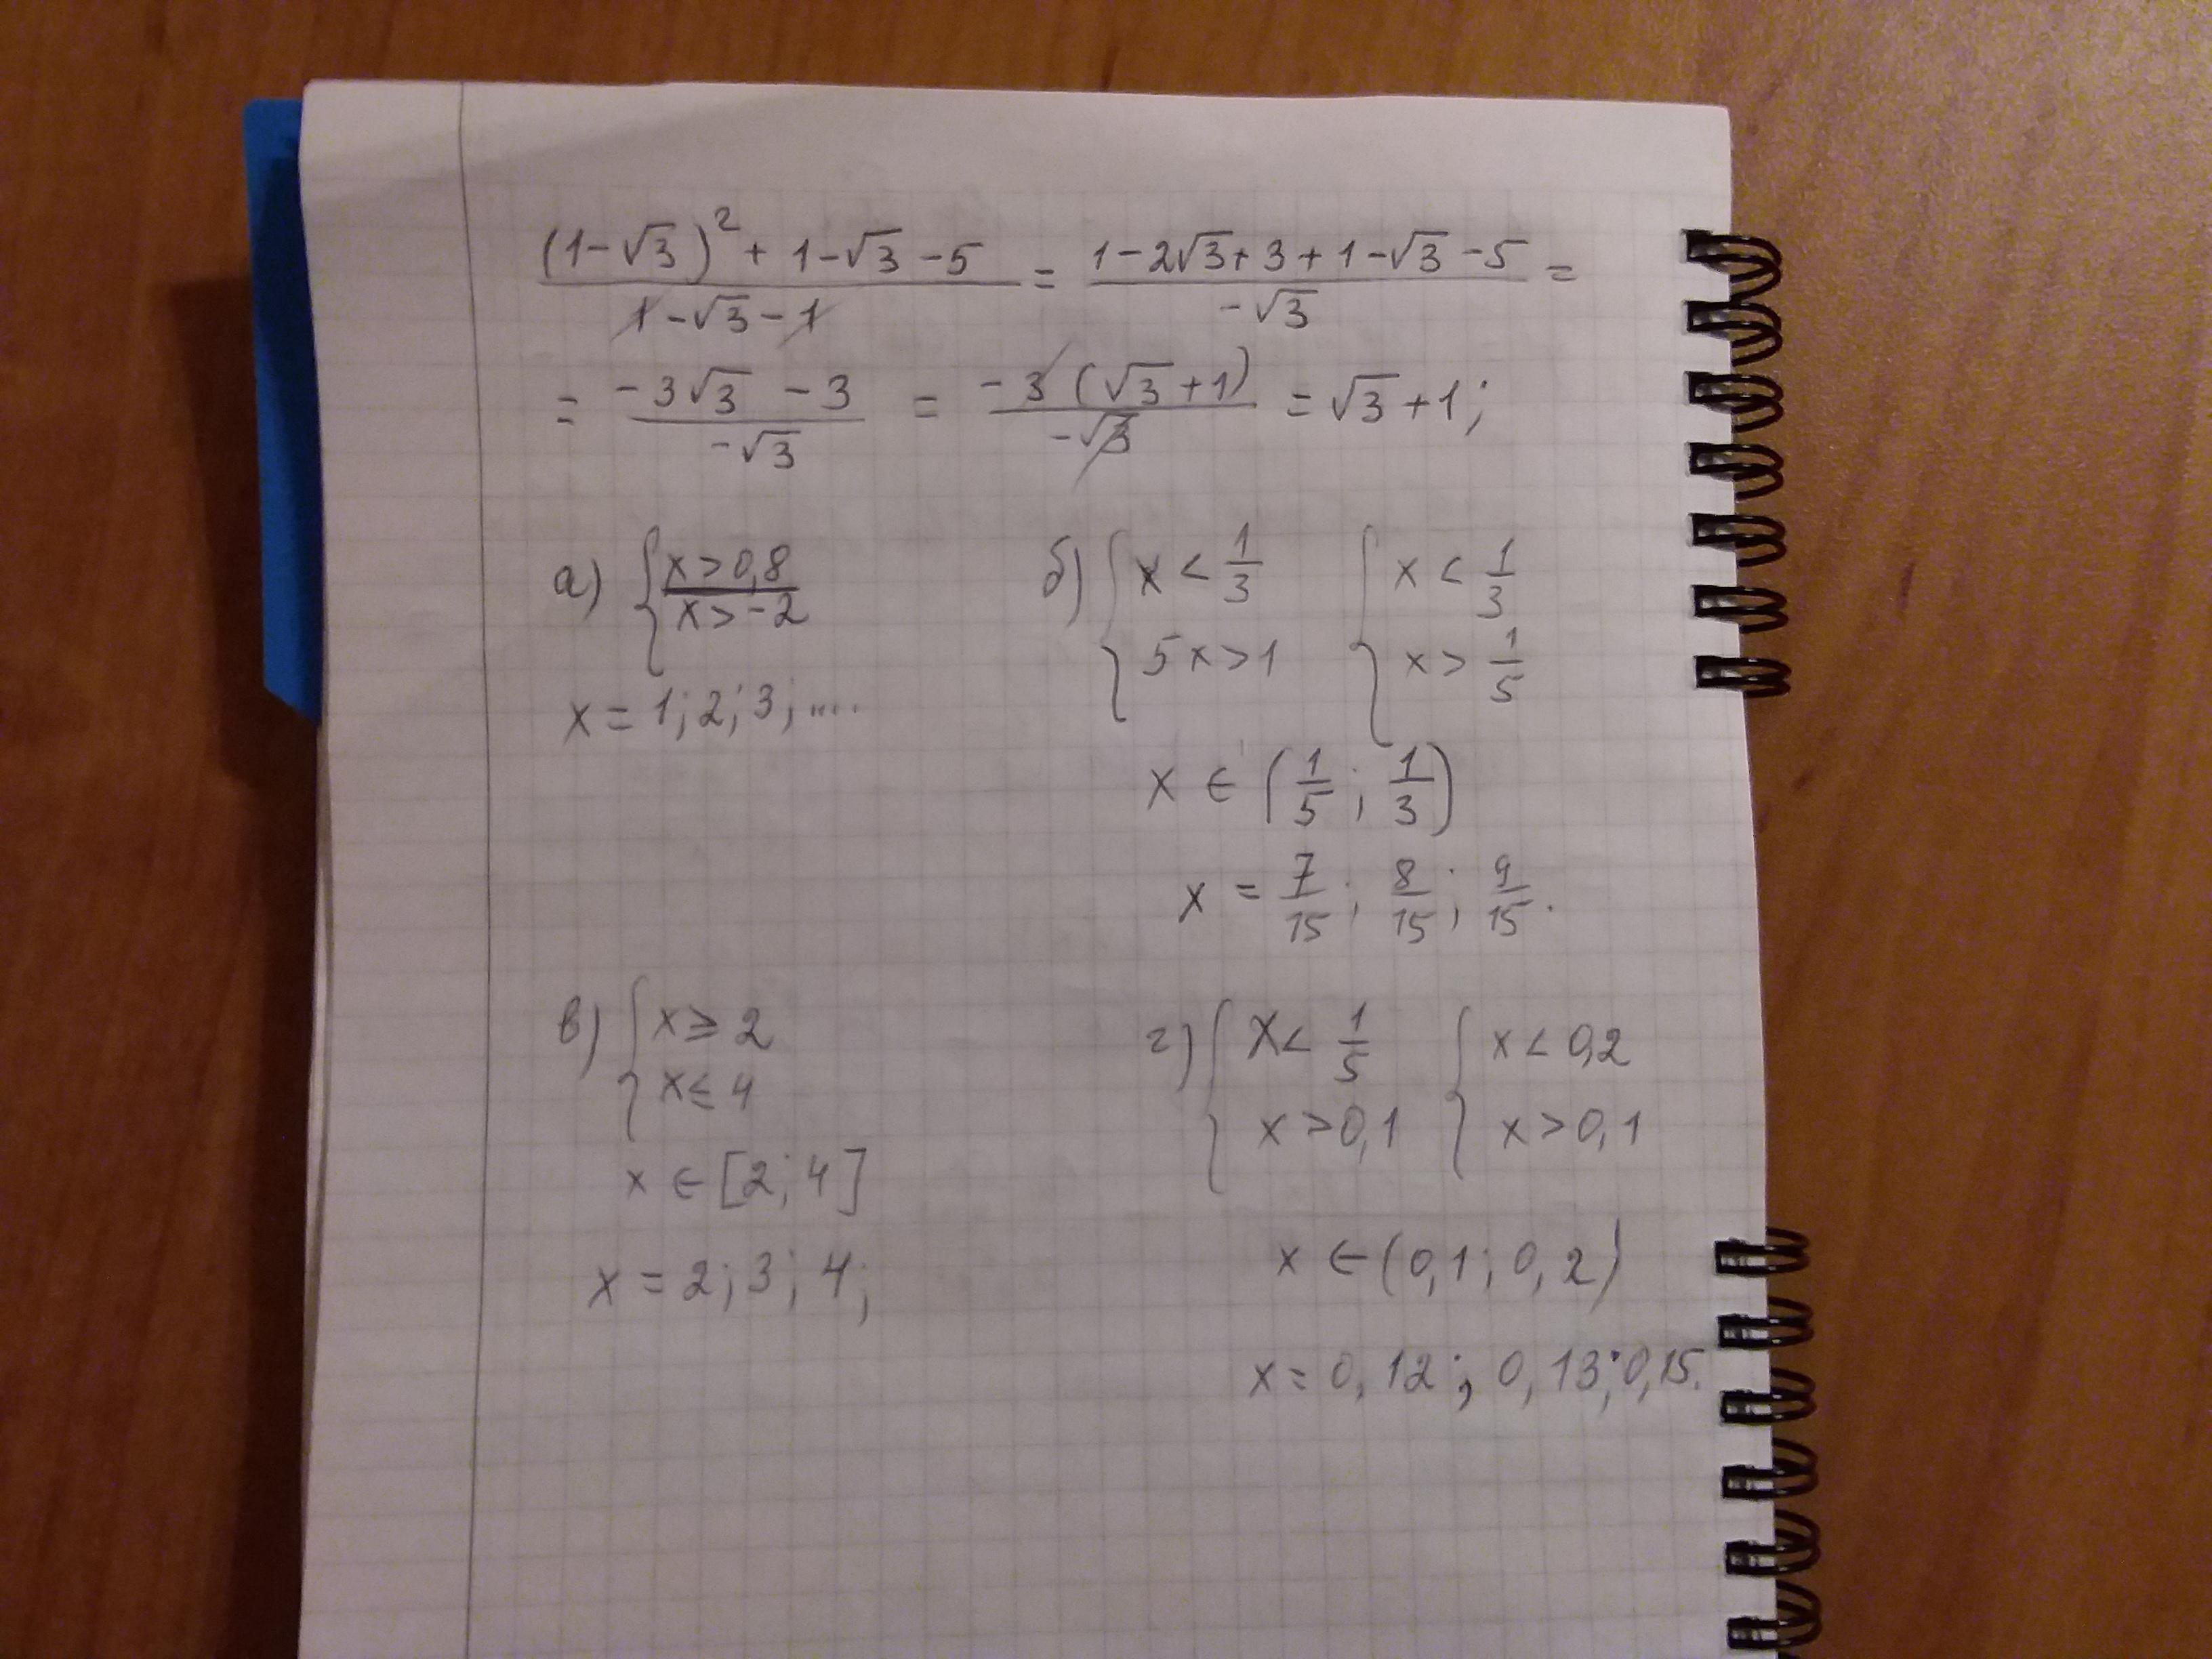 ((1-√3)² + 1-√3 -5)/(1-√3-1) = (1-2√3+3+1-√3-5)/(-√3) =
= (-3√3 -3)/(-√3) = (-3(√3+1))/(-√3) = √3+1;
а) { x>0,8
x>-2
x = 1; 2; 3; ....
б) { x < 1/3 { x < 1/3
5x>1 x > 1/5
x ∈ (1/5; 1/3)
x = 7/15; 8/15; 9/15.
в) { x ≥ 2
x ≤ 4
x ∈ [2; 4]
x = 2; 3; 4;
г) { x < 1/5 { x < 0,2
x > 0,1 x > 0,1
x ∈ (0,1; 0,2)
x = 0,12; 0,13; 0,15.